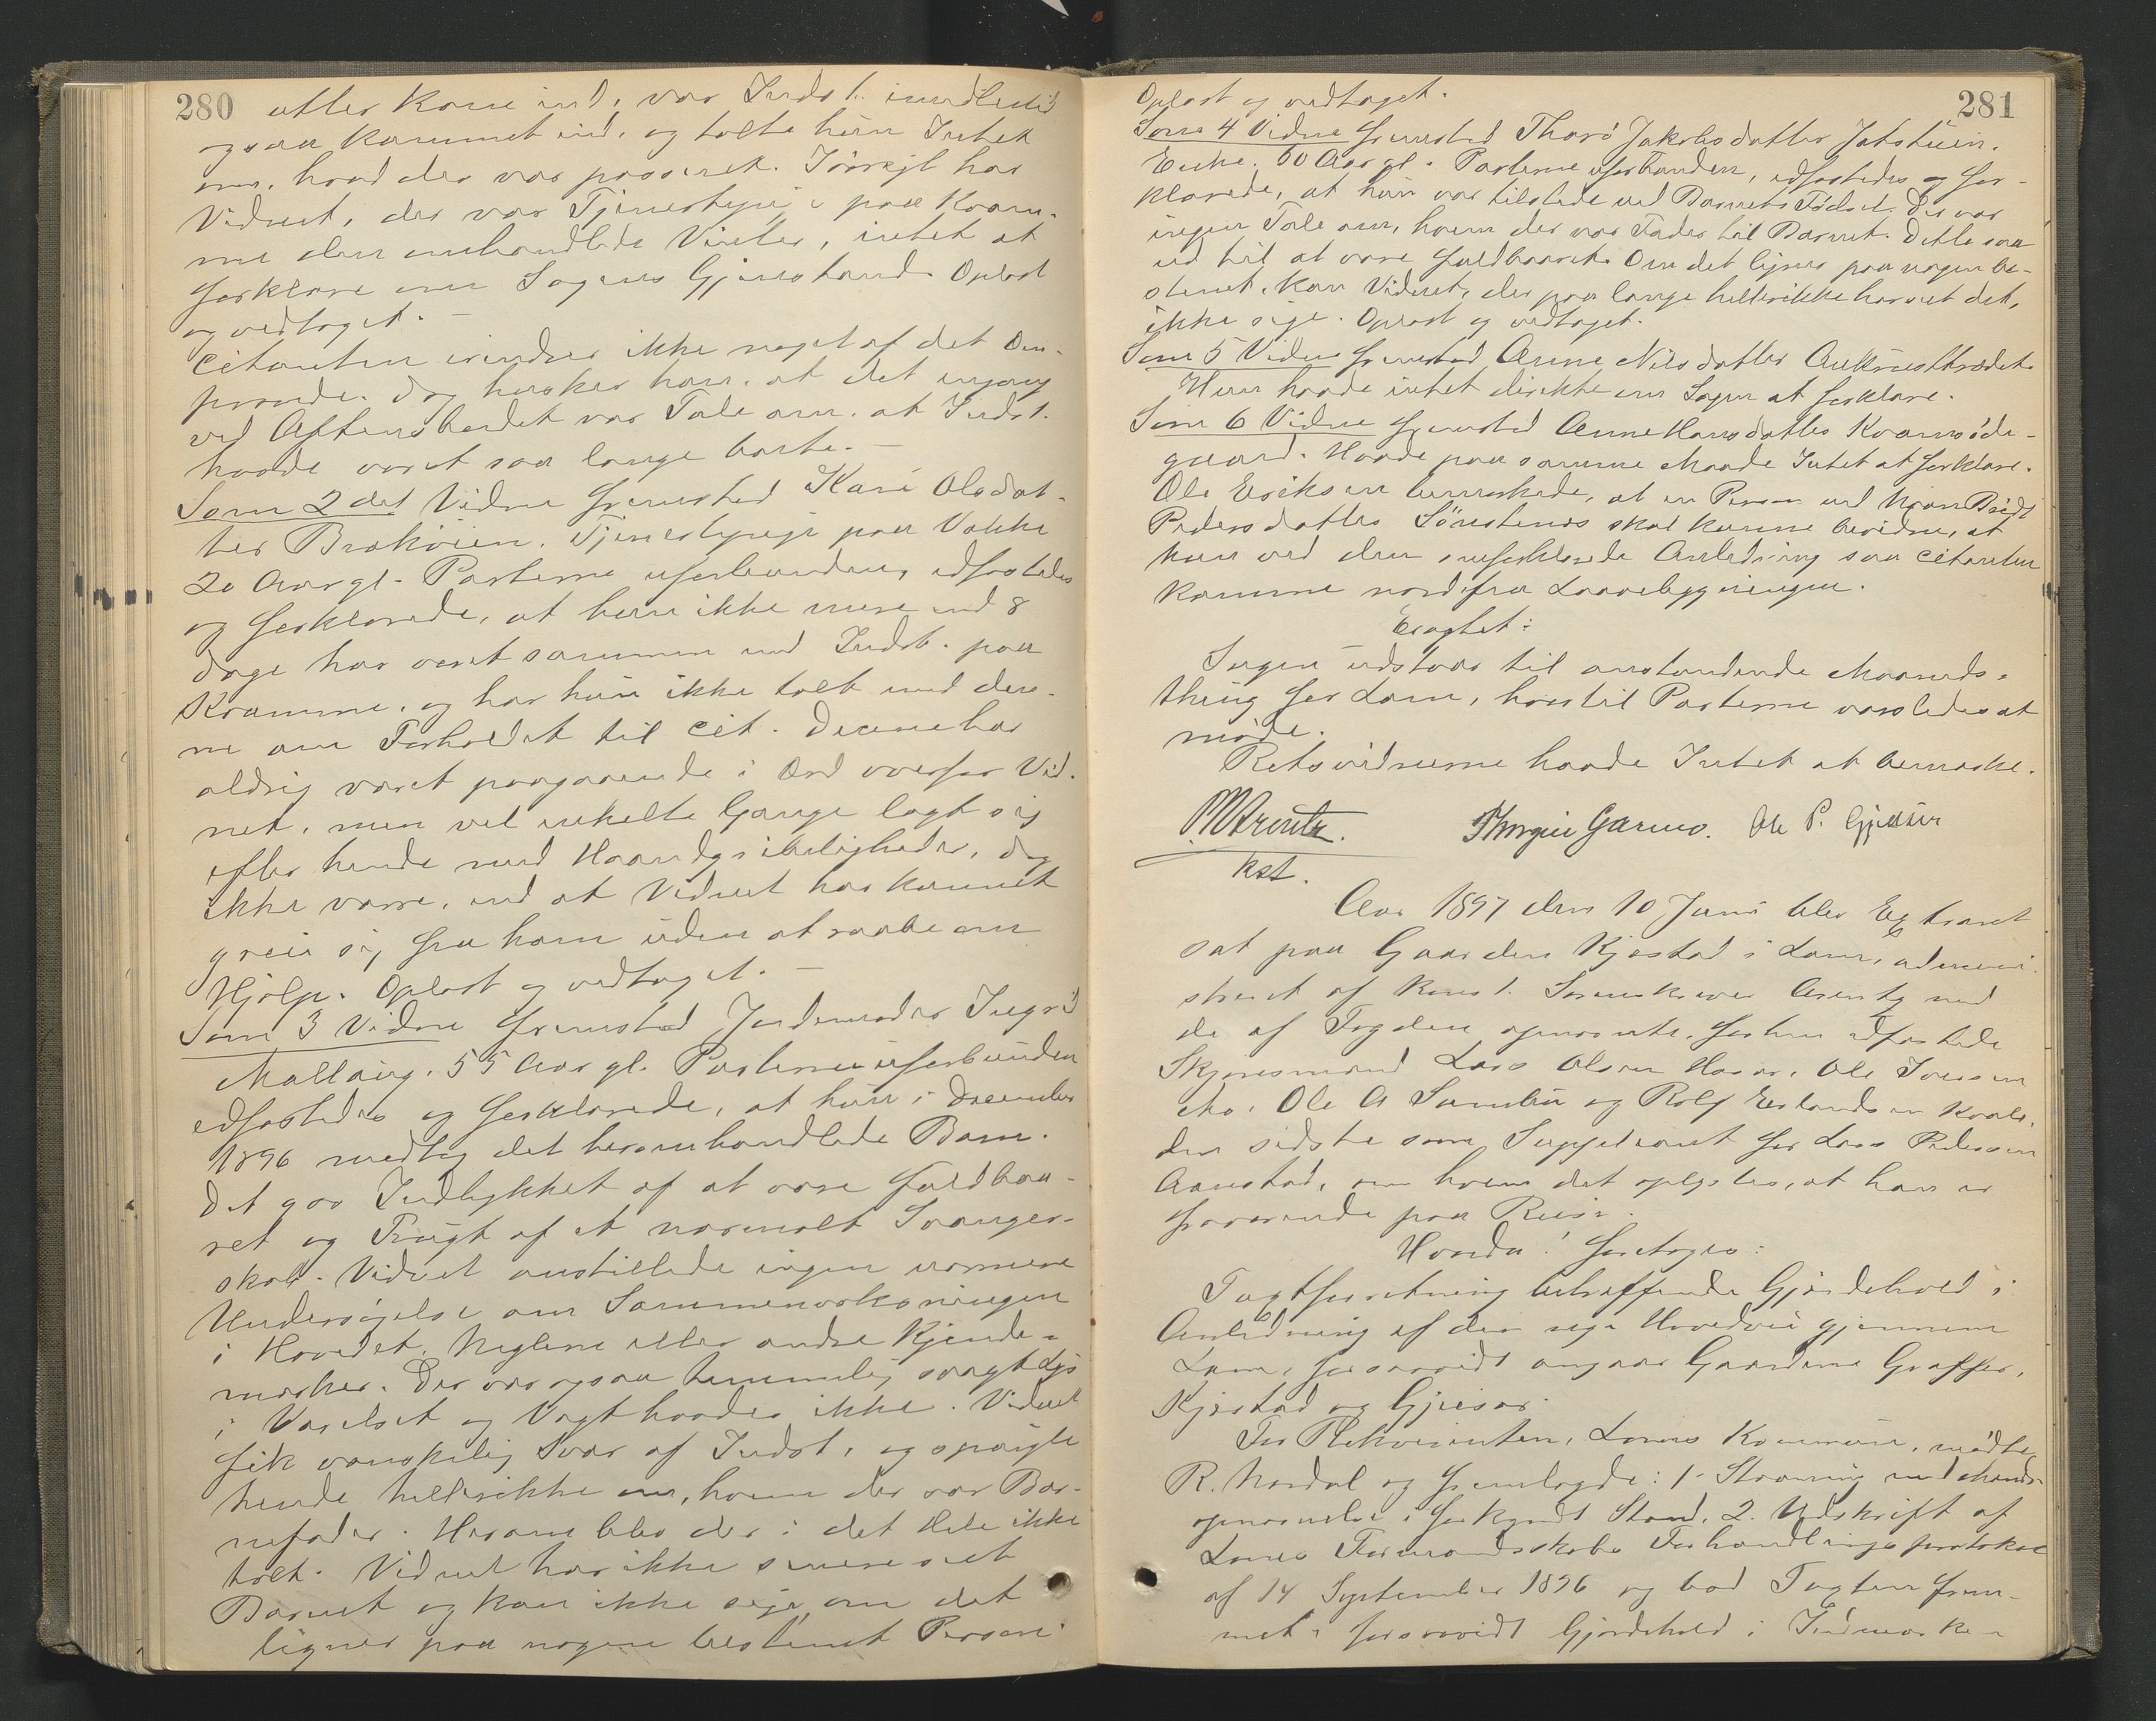 280
atter kom ind, var Indst. imidlertid
ogsaa kommet ind, og talte hun Intet
om, hvad der var passeret. Forøvrigt har
Vidnet, der var Tjenestepige paa Kvam-
me den omhandlede Vinter, intet at
forklare om Sagens Gjenstand. Oplæst
og vedtaget. —
Citanten erindrer ikke noget af det Om-
prov­ede. Dog husker han, at det engang
ved Aftensbordet var Tale om, at Indst.
havde været saa længe borte. —
Som 2det Vidne fremstod Kari Olsdat-
ter Brækøien, Tjenestepige paa Vakke
20 Aar gl. Parterne uforbunden, edfæstedes
og forklarede, at hun ikke mere end 8
Dage har været sammen med Indst. paa
Kvamme, og har hun ikke talt med den-
ne om Forholdet til Cit. Denne har
aldrig været paagaaende i Ord overfor Vid-
net, men vel enkelte Gange lagt sig
efter hende med Haandgribeligheder, dog
ikke værre, end at Vidnet har kunnet
greie sig fra ham uden at raabe om
Hjælp. Oplæst og vedtaget. —
Som 3 Vidne fremstod Jordemoder Ingrid
Malling, 55 Aar gl. Parterne uforbunden
edfæstedes og forklarede, at hun i December
1896 modtog det heromhandlede Barn.
Det gav Indtrykket af at være fuldbaa-
ret og Frugt af et normalt Svanger-
skab. Vidnet anstillede ingen nærmere
Undersøgelse om Sammenvoksningen
i Hovedet, Neglene eller andre Kjende-
mærker. Der var ogsaa temmelig svagt Lys
i Værelset og Vægt havdes ikke. Vidnet
fik vanskelig Svar af Indst. og spurgte
hende hellerikke om, hvem der var Bar-
nefader. Herom blev der i det Hele ikke
talt. Vidnet har ikke senere seet
Barnet og kan ikke sige, om det
ligner paa nogen bestemt Person.
281
Oplæst og vedtaget.
Som 4 Vidne fremstod Thora Jakobsdatter
Enke, 60 Aar gl. Parterne uforbunden, edfæstedes og for-
klarede, at hun var tilstede ved Barnets Fødsel. Der var
ingen Tale om, hvem der var Fader til Barnet. Dette saa
ud til at være fuldbaaret. Om det ligner paa nogen be-
stemt, kan Vidnet, der paa længe hellerikke har seet det,
ikke sige. Oplæst og vedtaget.
Som 5 Vidne fremstod Anne Nilsdatter
Hun havde intet direkte om Sagen at forklare.
Som 6 Vidne fremstod Anne Hansdatter Kvamsøde-
gaard. Havde paa samme Maade Intet at forklare.
Ole Eriksen bemærkede, at en Person ved Navn
Pedersdatter skal kunne bevidne, at
hun ved den omforklarede Anledning saa Citanten
komme nordfra Laavebygningen.
Eragtet:
Sagen udstaar til anstundende Maaneds-
thing for Lom, hvortil Parterne varsledes at
møde.
Retsvidnerne havde Intet at bemærke.
Arentz. Thorgeir Garmo. Ole P. Gjeilvir
kst.
Aar 1897 den 10 Juni blev Extraret
sat paa Gaarden Kjæstad i Lom, admini-
streret af konst. Sorenskriver Arentz med
de af Fogden opnævnte, forhen edfæstede
Skjønsmænd Lars Olsen Hoser, Ole Iversen
Mo, Ole A Sumbu og Rolf Erlandsen Kvale,
den sidste som Suppleant for Lars Pedersen
Aanstad, om hvem det oplystes, at han er
fraværende paa Reise.
Hvorda! foretoges:
Taxtforretning betræffende Gjærdehold i
Anledning af den nye Hovedvei gjennem
Lom, forsaavidt angaar Gaardene Graffer,
Kjæstad og Gjeisar.
For Rekvirenten, Loms Kommune, mødte
R. Nordal og fremlagde: 1. Stævning med Mands-
opnævnelse i forkyndt Stand. 2. Udskrift af
Loms Formandskabs Forhandlingsprotokol
af 14 September 1896 og bad Taxten frem-
met, forsaavidt Gjærdehold i Indmarken